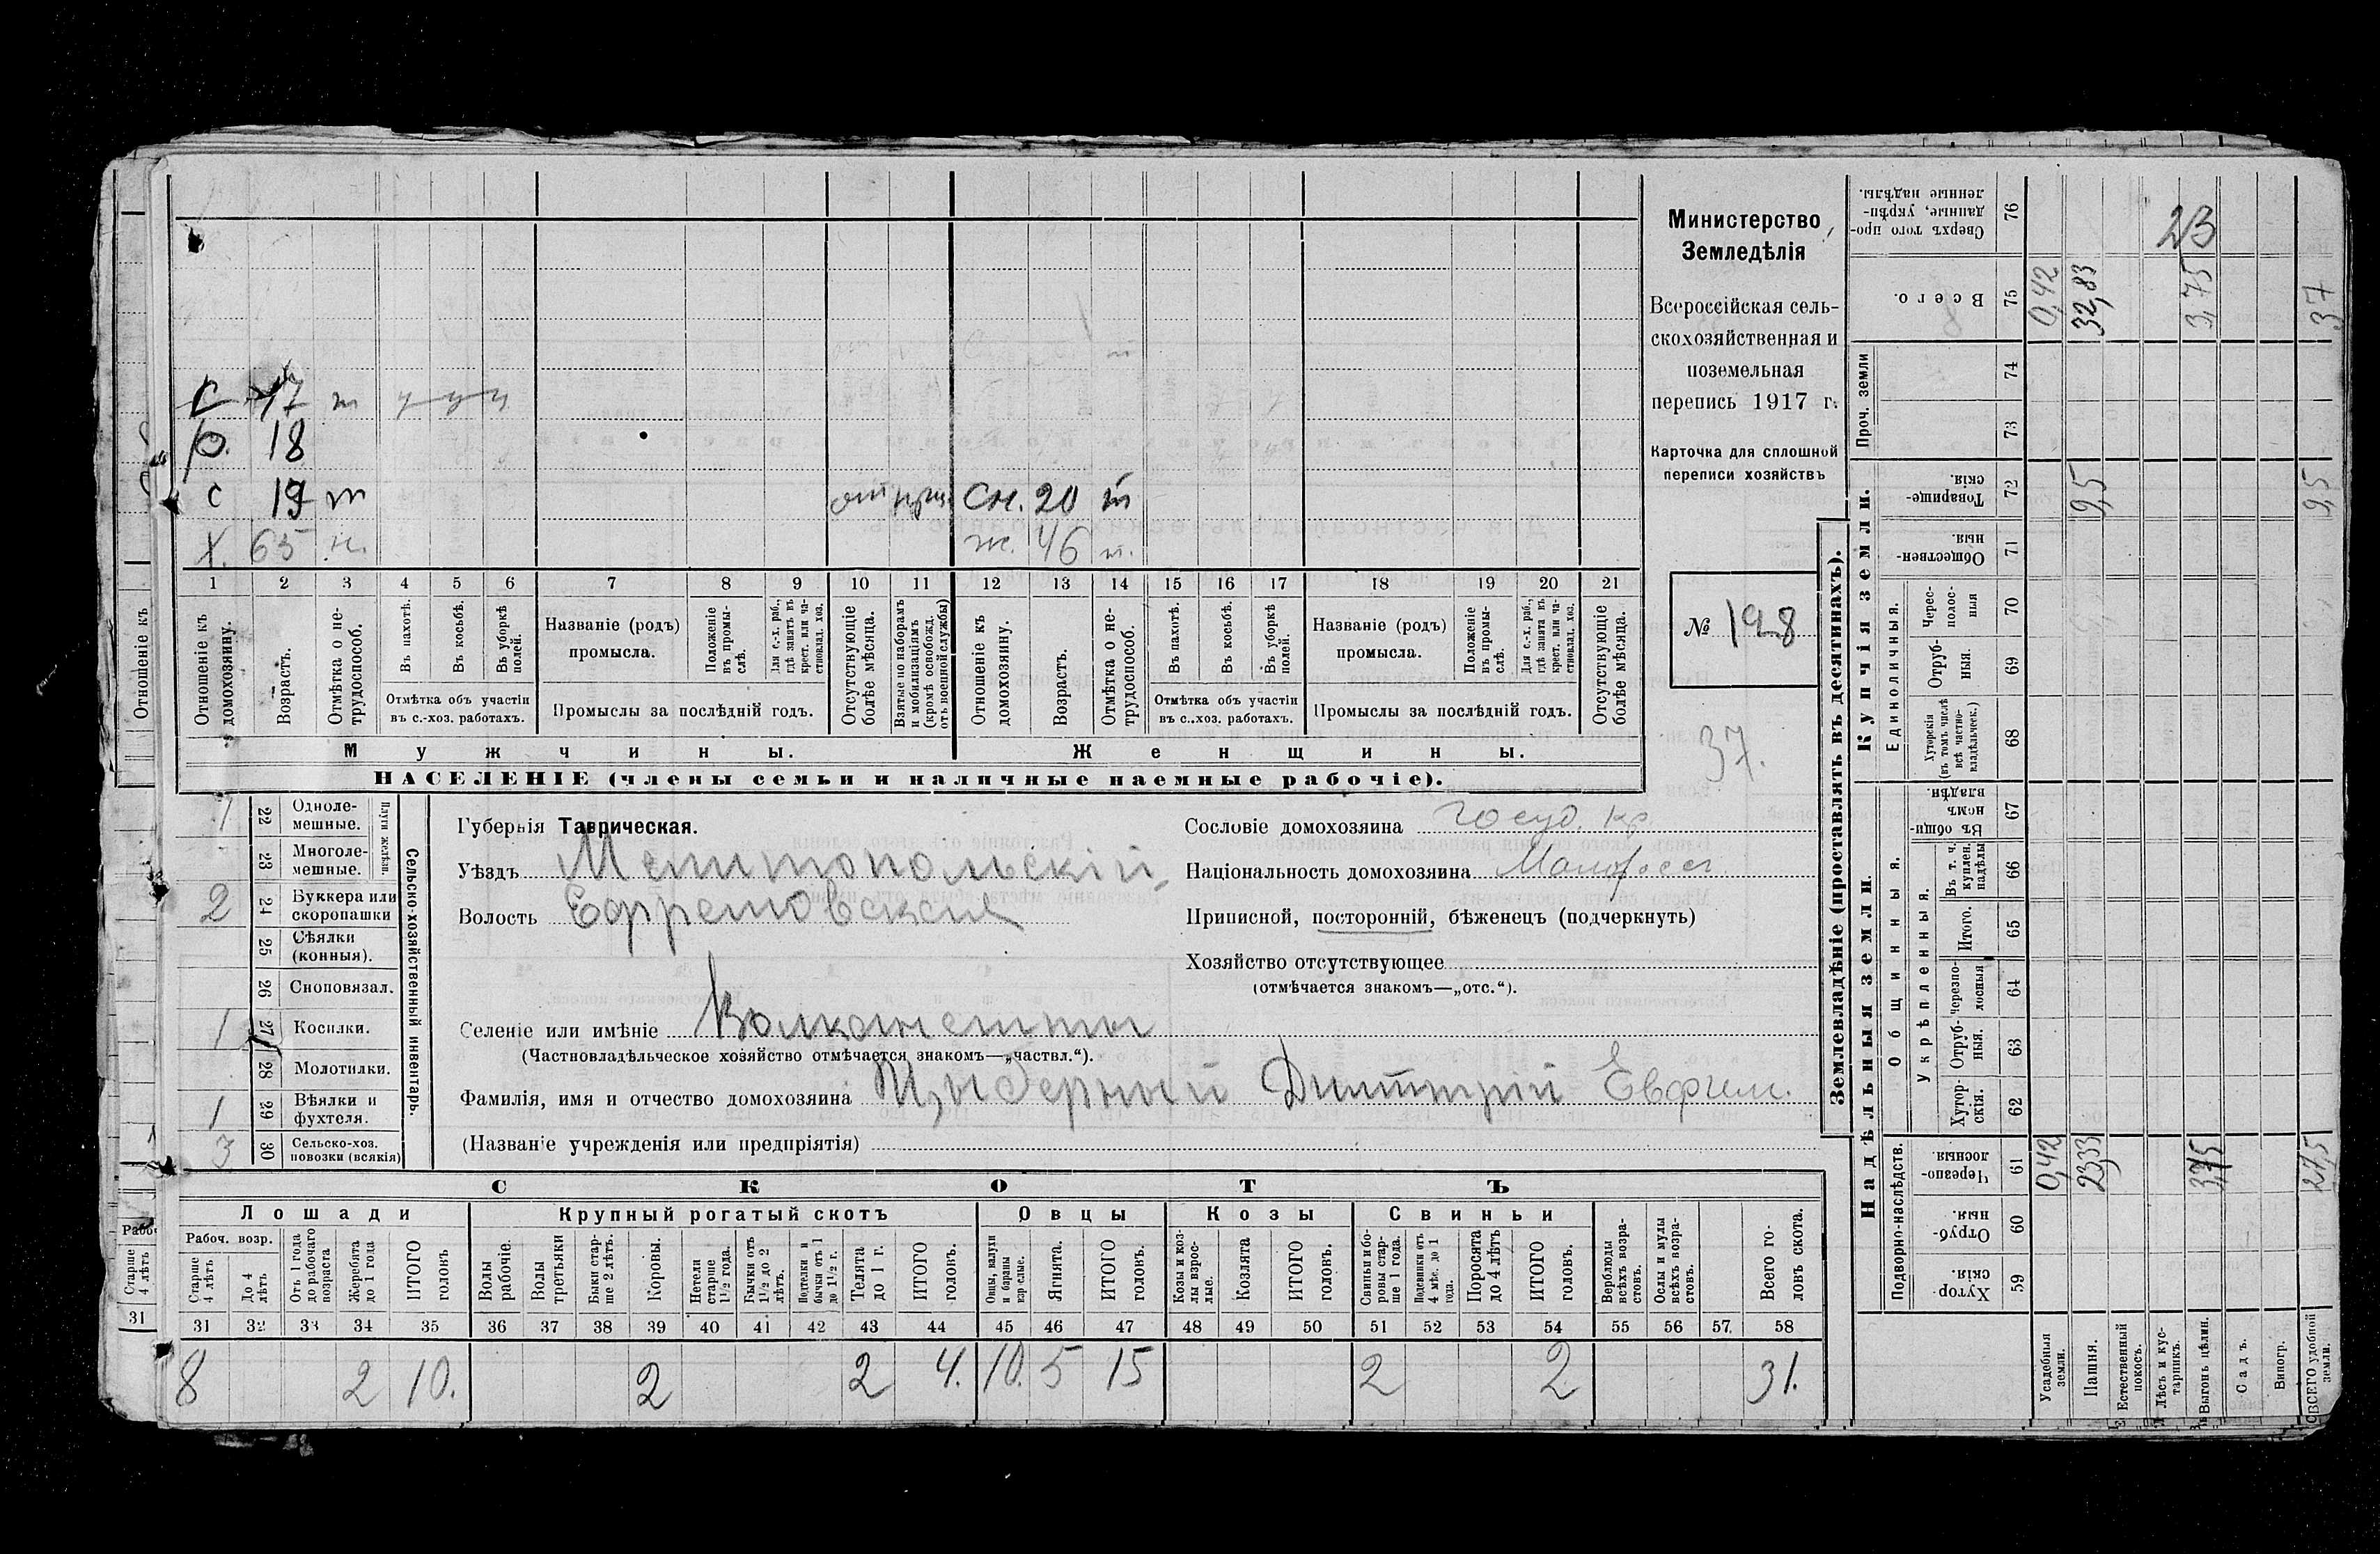 С 17 т
р. 18
с 19 т Сн. 20 т
Х 65 н. ж. 46 т.
1 2 3 4 5 6 7 8 9 10 11 12 13 14 15 16 17 18 19 20 21
Отношеніе къ домохозяину.
Возрастъ.
Отмѣтка о не-трудоспособ.
Въ пахотѣ.
Въ косьбѣ.
Въ уборкѣ полей.
Отмѣтка объ участіи въ с.-хоз. работахъ.
Названіе (родъ) промысла.
Положеніе въ промы-слѣ.
Для с.-х. раб., гдѣ занятъ въ крест. или ча-стновлад. хоз.
Промыслы за послѣдній годъ.
Отсутствующіе болѣе мѣсяца.
Взятые по наборамъ и мобилизаціямъ (кромѣ освобожд. отъ военной службы)
Отношеніе къ домохозяину.
Возрастъ.
Отмѣтка о не-трудоспособ.
Въ пахотѣ.
Въ косьбѣ.
Въ уборкѣ полей.
Отмѣтка объ участіи въ с.-хоз. работахъ.
Названіе (родъ) промысла.
Положеніе въ промы-слѣ.
Для с.-х. раб., гдѣ занята въ крест. или ча-стновлад. хоз.
Промыслы за послѣдній годъ.
Отсутствующіе болѣе мѣсяца.
Мужчины. Женщины.
НАСЕЛЕНІЕ (члены семьи и наличные наемные рабочіе).
Министерство
Земледѣлія
Всероссійская сель-
скохозяйственная и
поземельная
перепись 1917 г.
Карточка для сплошной
переписи хозяйствъ
№ 198
37.
1 22 Одноле-мешные.
23 Многоле-мешные.
Плуги желѣзн.
2 24 Буккера или скоропашки
25 Сѣялки (конныя).
26 Сноповязал.
1 27 Косилки.
28 Молотилки.
1 29 Вѣялки и фухтеля.
3 30 Сельско-хоз. повозки (всякія)
Сельско-хозяйственный инвентарь.
Губернія Таврическая.
Уѣздъ Мелитопольскій
Волость Ефремовская
Селеніе или имѣніе
(Частновладѣльческое хозяйство отмѣчается знакомъ—„частвл.“).
Фамилія, имя и отчество домохозяина Цыберный Дмитрій Евфим.
(Названіе учрежденія или предпріятія)
Сословіе домохозяина госуд. кр.
Національность домохозяина Малоросс.
Приписной, посторонній, бѣженецъ (подчеркнуть)
Хозяйство отсутствующее
(отмѣчается знакомъ—„отс.“).
СКОТЪ
Лошади Крупный рогатый скотъ Овцы Козы Свиньи
Рабоч. возр.
Старше 4 лѣтъ
До 4 лѣтъ
Отъ 1 года до рабочаго возраста
Жеребята до 1 года
ИТОГО головъ.
Волы рабочіе.
Волы третьяки
Быки стар-ше 2 лѣтъ.
Коровы.
Нетели старше 1½ года.
Бычки отъ 1½ до 2 лѣтъ.
Подтелки и бычки отъ 1 до 1½ г.
Телята до 1 г.
ИТОГО головъ.
Овцы, валухи и бараны взрослые.
Ягнята.
ИТОГО головъ.
Козы и коз-лы взрос-лые.
Козлята
ИТОГО головъ.
Свиньи и бо-ровы стар-ше 1 года.
Подсвинки отъ 4 мѣс. до 1 года.
Поросята до 4 лѣтъ
ИТОГО головъ.
Верблюды всѣхъ возра-стовъ.
Ослы и мулы всѣхъ возра-стовъ.
Всего го-ловъ скота.
31 32 33 34 35 36 37 38 39 40 41 42 43 44 45 46 47 48 49 50 51 52 53 54 55 56 57. 58
8 2 10. 2 2 4. 10. 5 15 2 2 31.
Землевладѣніе (проставлять въ десятинахъ).
Надѣльныя земли.
Купчія земли.
Проч. земли
Подворно-наслѣдств.
Общинныя.
Укрѣпленныя.
Единоличныя.
Хутор-скія. 59
Отруб-ныя. 60
Черезпо-лосныя. 61
Хутор-скія. 62
Отруб-ныя. 63
Черезпо-лосныя 64
Итого. 65
Въ т. ч. куплен. надѣлы 66
Въ общи-номъ владѣн. 67
Хуторскія (въ томъ числѣ всѣ частно-владѣльческ.) 68
Отруб-ныя. 69
Черес-полос-ныя 70
Обществен-ныя. 71
Товарище-скія. 72
73
74
Всего. 75
Сверхъ того про-данные, укрѣп-ленные надѣлы. 76
Усадебныя земли. 0,42 0,42
Пашня. 23,33 9,5 32,83
Естественный покосъ.
Лѣсъ и кус-тарникъ.
Выгонъ цѣлин. 3,75 3,75
Садъ.
Виногр.
ВСЕГО удобной земли. 27,5 9,5 37
23
Отношеніе къ
Старше 4 лѣтъ
31